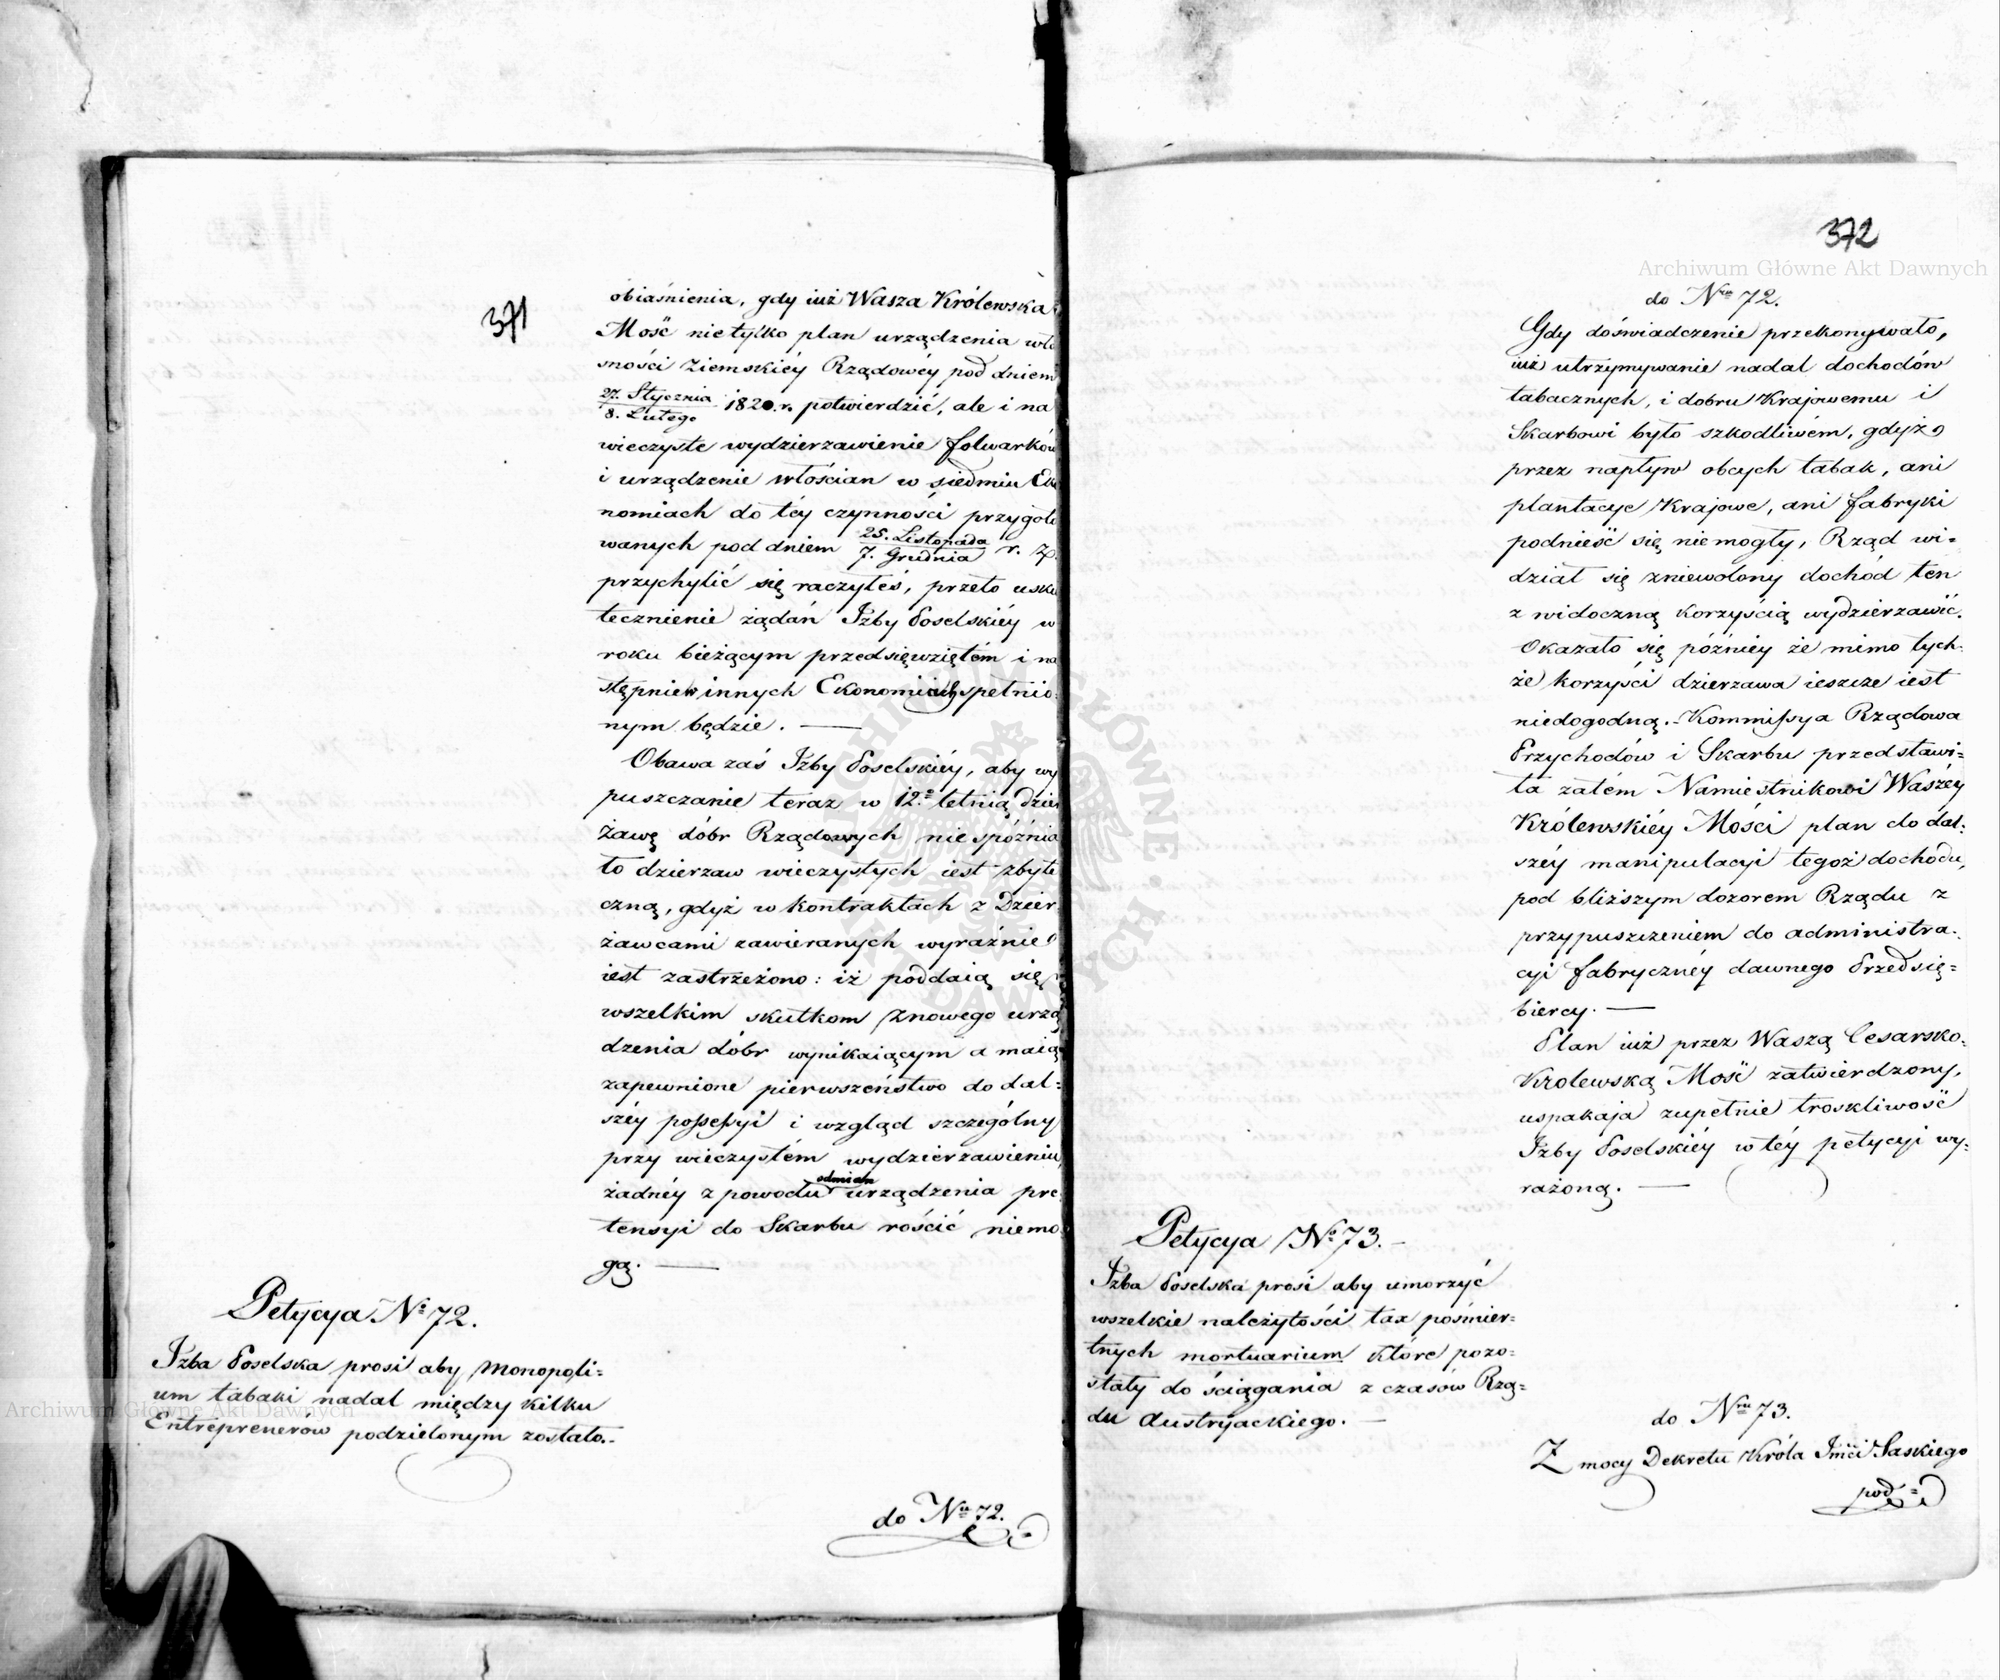 371
obiaśnienia, gdy iuż Wasza Królewska
Mość nietylko plan urządzenia wło
sności Ziemskiéy Rządowéy pod dniem
27. Stycznia
8. Lutego 1820. r. potwierdzić, ale i na
wieczyste wydzierzawienie folwarków
i urządzenie włościan w siedmiu Eko
nomiach do téy czynności przygoto
wanych pod dniem 25. Listopada
7. Grudnia r. z.
przychylić się raczyłeś, przeto usku
tecznienie żądań Izby Poselskiéy w
roku bieżącym przedsięwziętém i na
stępnie w innych Ekonomiach spełnio=
nym będzie. —
Obawa zaś Izby Poselskiéy, aby wy
puszczanie teraz w 12.º letnią dzier
żawę dóbr Rządowych nie spóźnia
ło dzierzaw wieczystych iest zbyte
czną, gdyż w kontraktach z Dzier
żawcami zawieranych wyraźnie
iest zastrzeżono: iż poddaią się
wszelkim skutkom z nowego urzą
dzenia dóbr wynikaiącym a maią
zapewnione pierwszeństwo do dal=
széy possessyi i wzgląd szczególny
przy wieczystém wydzierzawieniu,
żadnéy z powodu odmian urządzenia pre
tensyi do Skarbu rościć niemo
gą. —
Petycya Nº 72.
Izba Poselska prosi aby monopoli=
um tabaki nadal między kilku
Entreprenerów podzielonym zostało.-
do Nru 72.
372
do Nru 72.
Gdy doświadczenie przekonywało,
iuż utrzymywanie nadal dochodów
tabacznych, i dobru Krajowemu i
Skarbowi było szkodliwém, gdyż
przez napływ obcych tabak, ani
plantacye Krajowe, ani fabryki
podnieść się niemogły, Rząd wi=
dział się zniewolony dochód ten
z widoczną korzyścią wydzierzawić.
Okazało się późniey że mimo tych=
że korzyści dzierzawa ieszcze iest
niedogodną.- Kommissya Rządowa
Przychodów i Skarbu przedstawi=
ła zatém Namiestnikowi Waszéy
Królewskiéy Mości plan do dal=
széy manipulacyi tegoż dochodu,
pod bliższym dozorem Rządu z
przypuszczeniem do administra=
cyi fabrycznéy dawnego Przedsię=
biercy. —
Plan iuż przez Waszą Cesarsko=
Krolewską Mość zatwierdzony,
uspakaja zupełnie troskliwość
Izby Poselskiéy w téy petycyi wy=
rażoną. —
Petycya Nº 73. -
Izba Poselska prosi aby umorzyć
wszelkie należytości tax pośmier=
tnych mortuarium które pozo=
stały do ściągania z czasów Rzą=
du Austryackiego. —
do Nru 73.
Z mocy Dekretu Króla Jmci Saskiego
pod =
Archiwum Główne Akt Dawnych
Archiwum Główne Akt Dawnych
ARCHIWUM GŁÓWNE • AKT DAWNYCH •